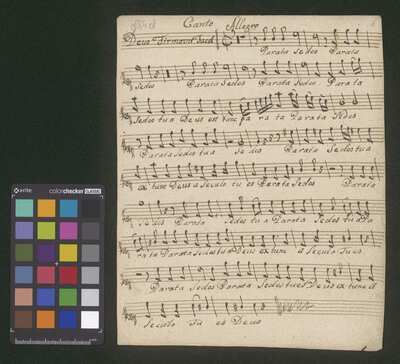 Canto Allegro
Deus Firmavit
Parata Sedes Parata
Sedes Parata Sedes Parata Sedes Parata
Sedes tua Deus ex tunc pa ra ta Parata Sedes
Parata Sedes tua Se des Parata Sedes tua
ex tunc Deus a Seculo tu es Parata Sedes Parata
Sedes Parata Sedes tua Parata Sedes tua Pa
ra ta Parata Sedes tua Deus ex tunc
Parata Sedes Parata Sedes tua Deus ex tunc
Seculo Tu es Deus
x-rite colorchecker CLASSIC